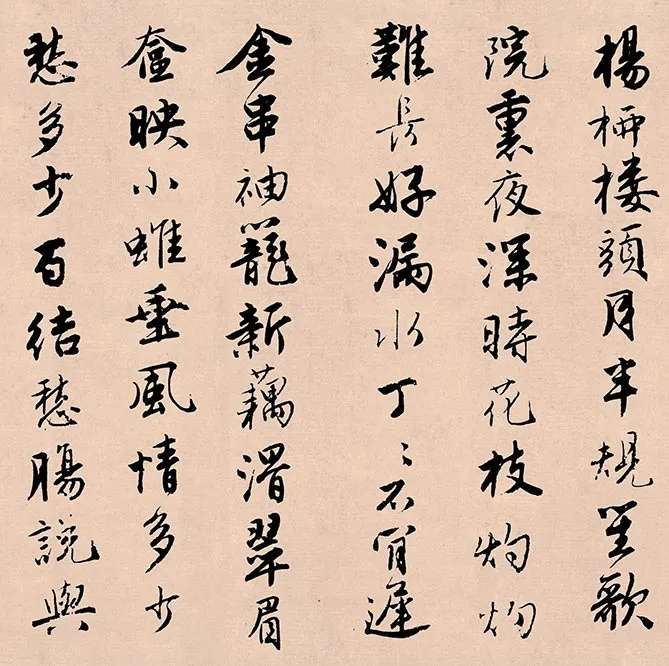 楊柳樓頭月半規笙歌
院裏夜深時花枝灼灼
難長好漏水丁〻不肯遲
金串袖籠新藕滑翠眉
奩映小蛾垂風情多少
愁多少百結愁腸說與